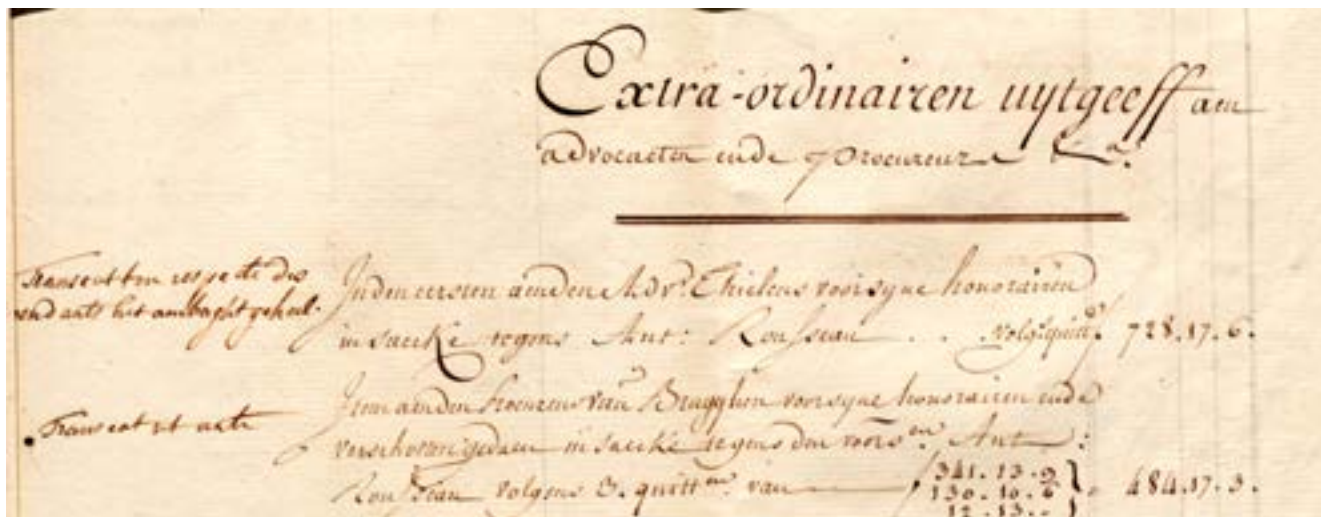 Extra-ordinairen uytgeeff aen
advocaeten ende procureurs &a.
Transeat ten respecte des
het ambaght geheel.
Inden eersten aenden Adv.t Thielens voor syne honorairen
in saecke tegens Ant: Rousseau . . volg: quitt.e 728.17.6.
Item aenden Procureur van Brugghen voor syne honorairen ende
verschoten gedaen in saecke tegens den voors.en Ant:
Transeat ut ante
Rousseau volgens 3. quitt.en van
341.13.9
130.10.6
12.13.-
484.17.3.